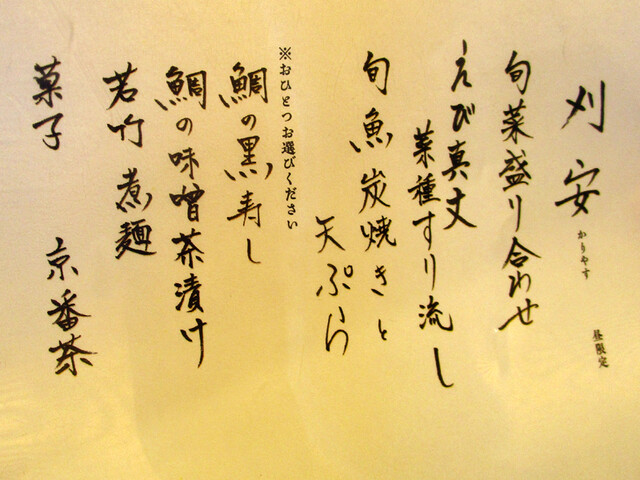 刈安
かりやす
昼限定
旬菜盛り合わせ
えび真丈
菜種すり流し
旬魚炭焼きと
天ぷら
※おひとつお選びください
鯛の黒寿し
鯛の味噌茶漬け
若竹煮麺
菓子
京番茶